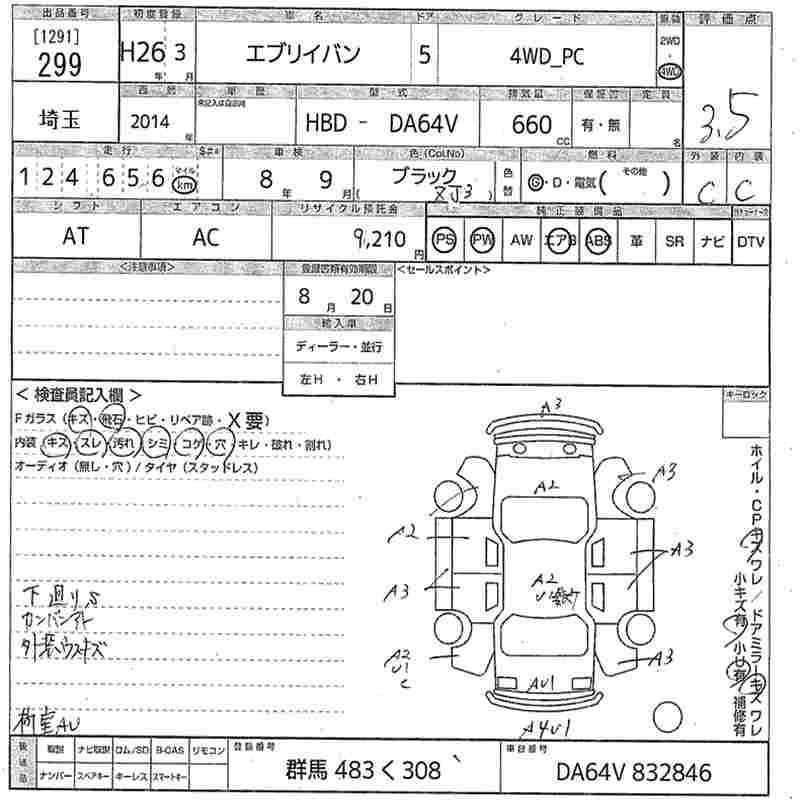 出品番号 初度登録 車名 ドア グレード 駆動 評価点
[1291] 299 H26年 3月 エブリイバン 5 4WD_PC 2WD・4WD 3.5
埼玉 西暦 車歴 型式 排気量 保証書 定員
2014年 未記入は自家用 HBD - DA64V 660CC 有・無 名
走行 車検 色(Col.No) 燃料 外装 内装
124,656 マイル km 8年 9月 ブラック ( ZJ3 ) 色替 G・D・電気( その他 ) C C
シフト エアコン リサイクル預託金 純正装備品
AT AC 9,210円 PS PW AW エアB ABS 革 SR ナビ DTV
<注意事項> 登録書類有効期限 <セールスポイント>
8月 20日
輸入車
ディーラー・並行
左H ・ 右H
< 検査員記入欄 > キーロック
Fガラス (キズ・飛石・ヒビ・リペア跡・X要)
内装 (キズ・スレ・汚れ・シミ・コゲ・穴・キレ・破れ・割れ)
オーディオ (無し・穴) / タイヤ (スタッドレス)
A3
A2 A3
A2 A3
A3 A2 U1
A2 U1 C A3
AU1
A4U1
下廻りS
カンバンアト
外装ウスキズ
荷室AU
ホイル・CPキズワレ / ドアミラーキズワレ
小キズ有 小U有 補修有
後送品 取説 ナビ取説 ロム/SD B-CAS リモコン 登録番号 車台番号
ナンバー スペアキー キーレス スマートキー 群馬 483 く 308 DA64V 832846